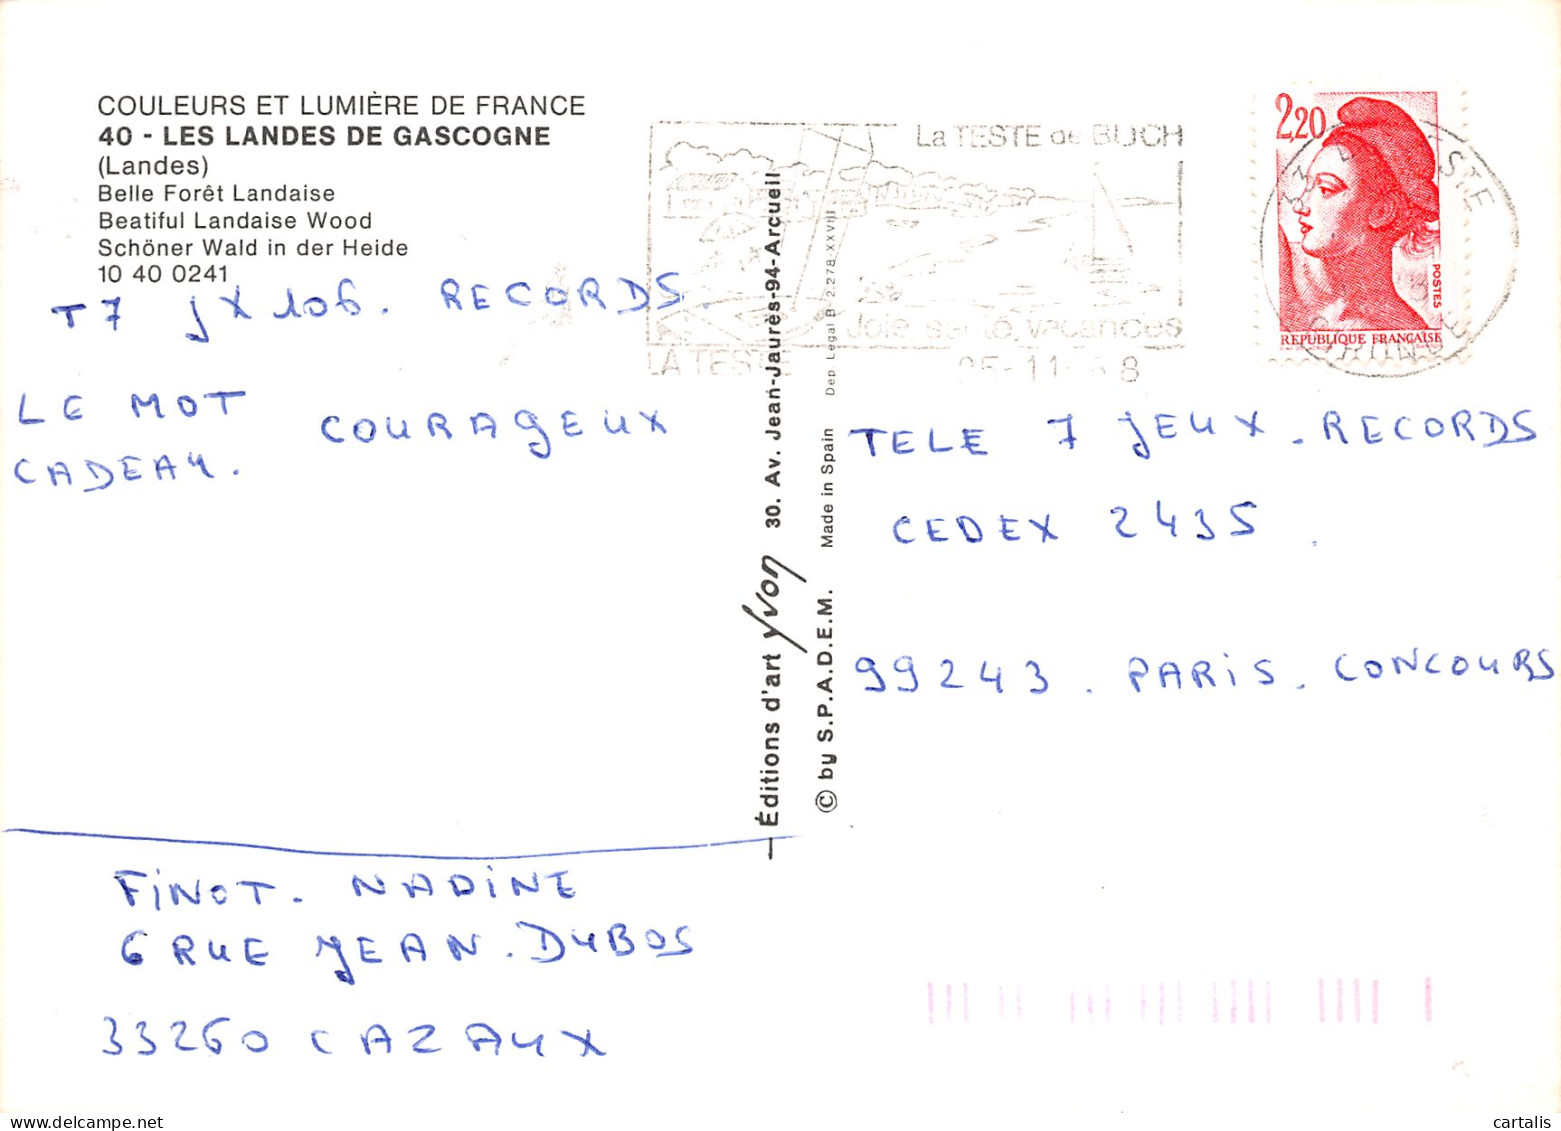 COULEURS ET LUMIÈRE DE FRANCE
40 - LES LANDES DE GASCOGNE
(Landes)
Belle Forêt Landaise
Beatiful Landaise Wood
Schöner Wald in der Heide
10 40 0241
T7 JX 106. RECORDS
LE MOT COURAGEUX
CADEAU.
FINOT. NADINE
6 RUE JEAN. DUBOS
33260 CAZAUX
Éditions d'art Yvon 30. Av. Jean-Jaurès-94-Arcueil
© by S.P.A.D.E.M. Made in Spain Dep. Légal B 2.278-XXVIII
La TESTE de BUCH
Joie, santé, vacances
LA TESTE
25-11-88
2,20
POSTES
REPUBLIQUE FRANÇAISE
TELE 7 JEUX. RECORDS
CEDEX 2435
99243. PARIS. CONCOURS
cartalis
www.delcampe.net